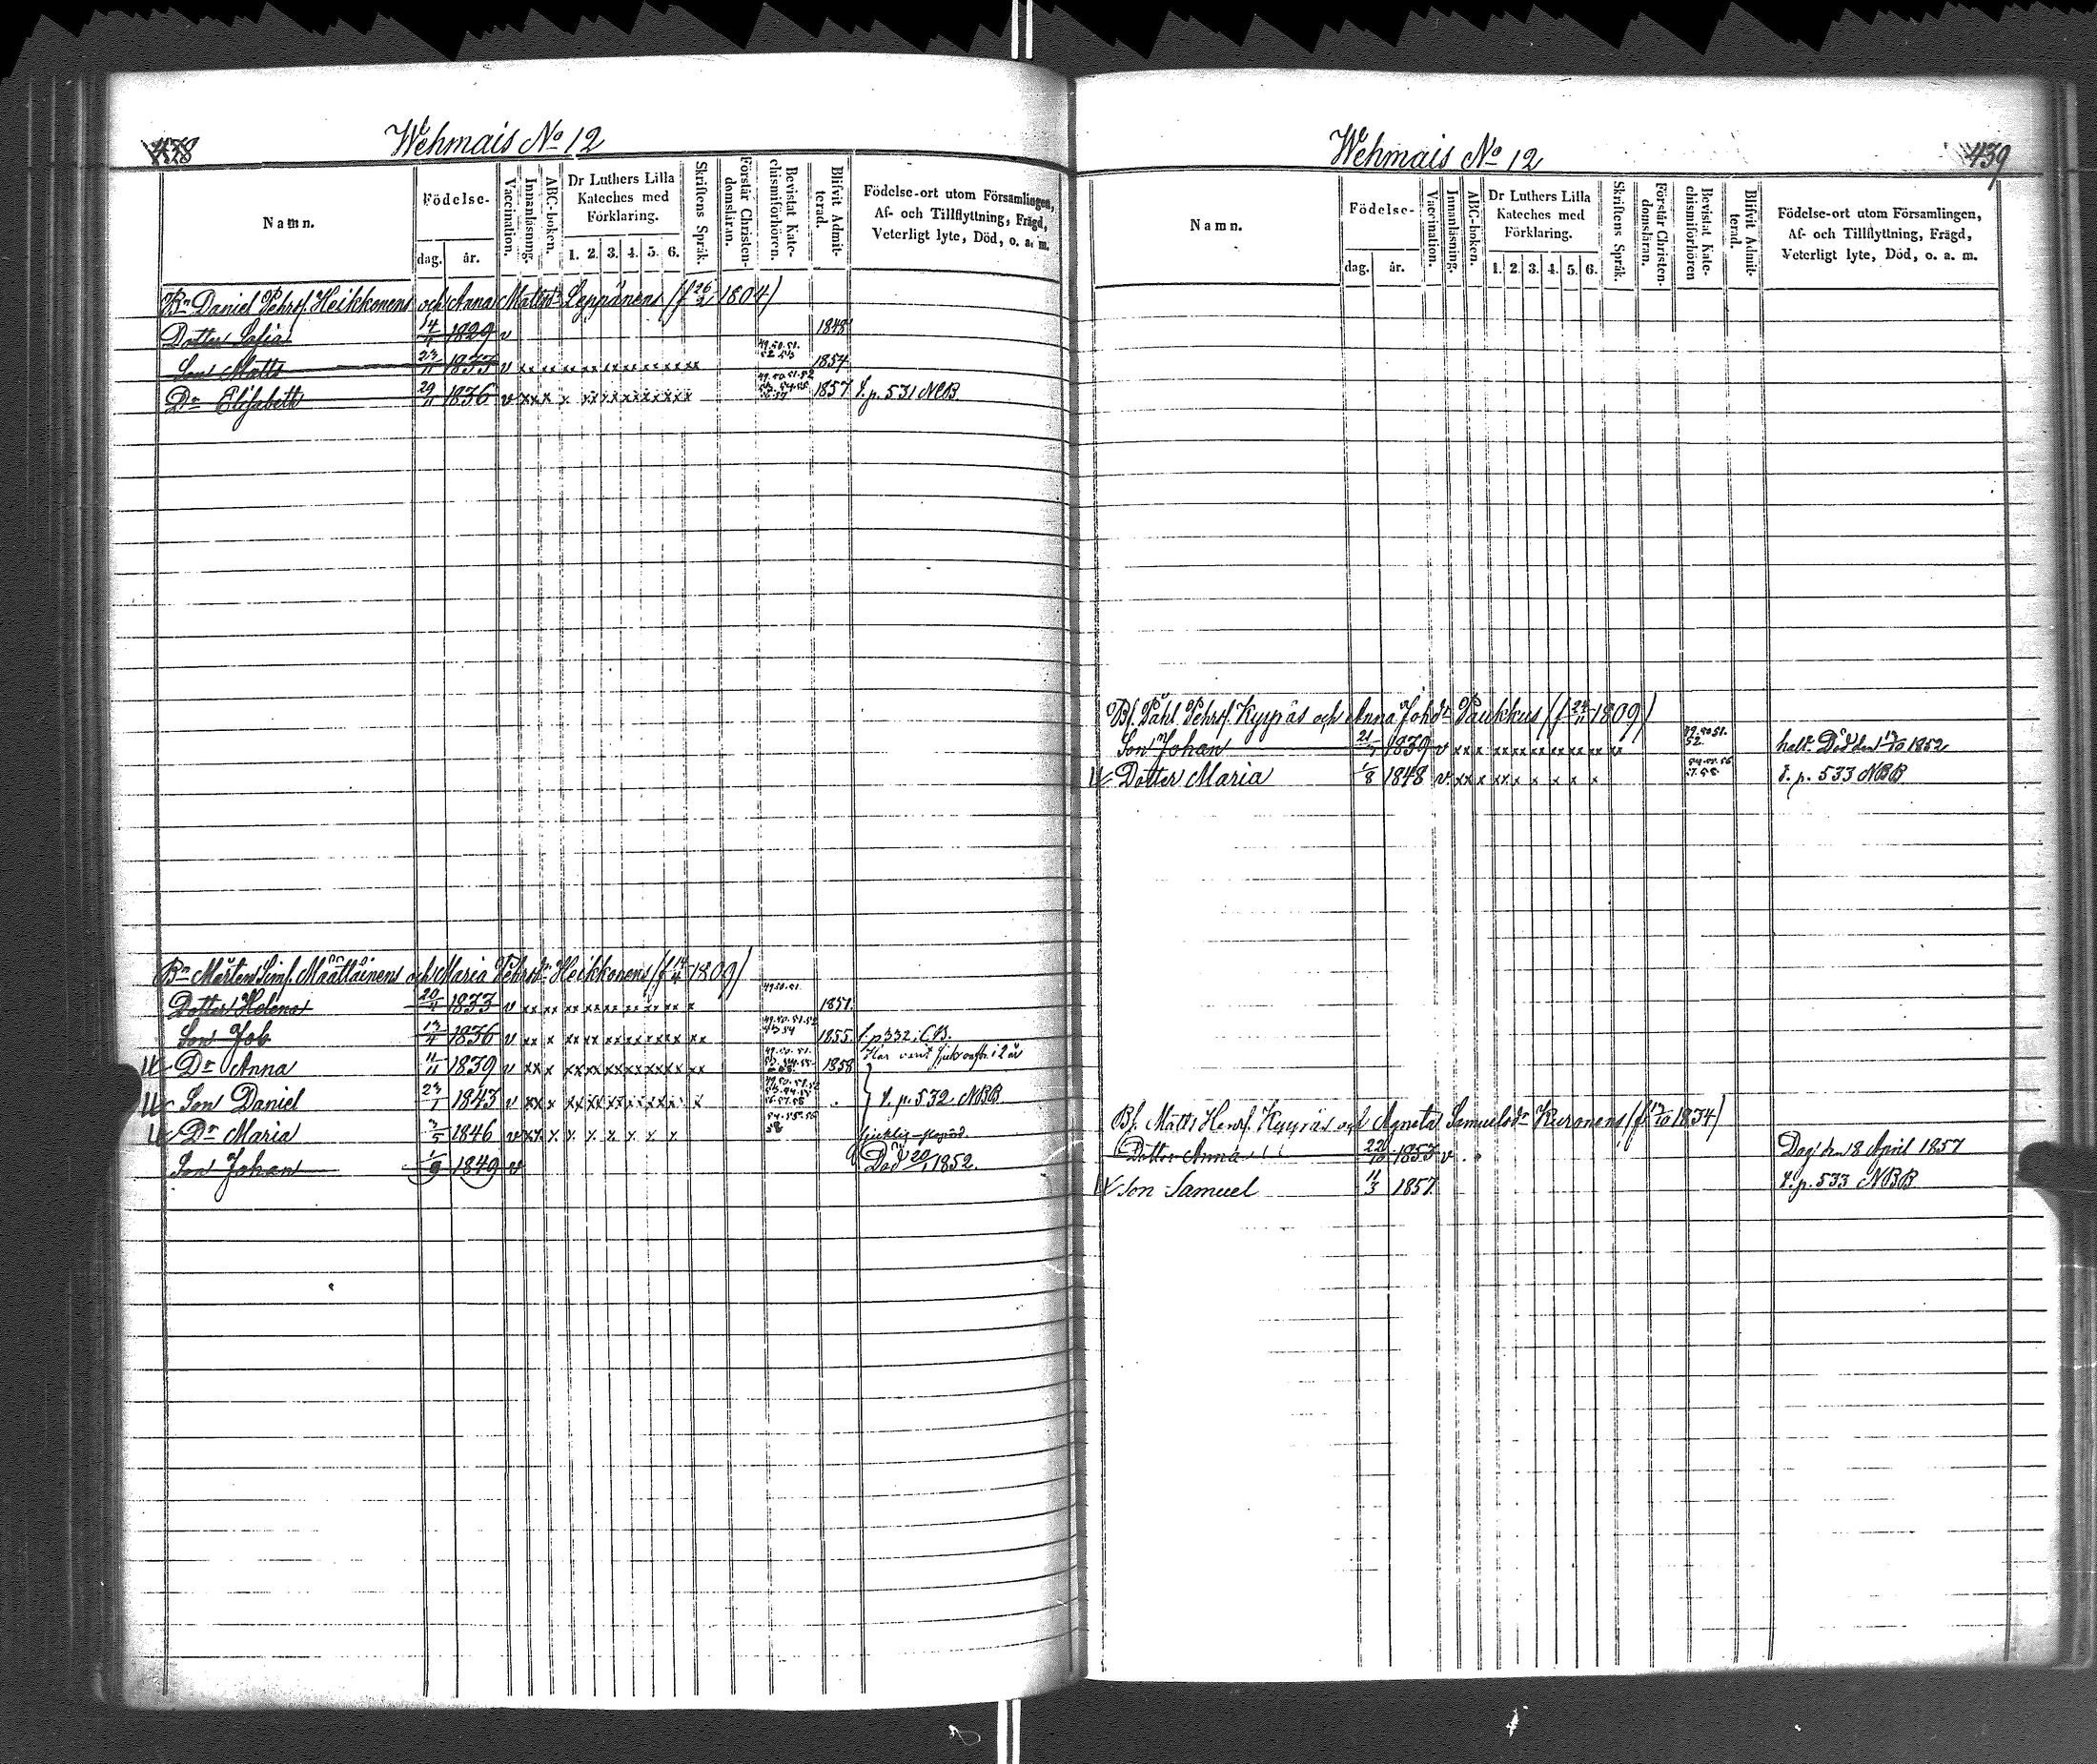 438
Wehmais No 12
Namn.
Födelse-
dag. år.
Vaccination.
Innanläsning.
ABC-boken.
Dr Luthers Lilla Kateches med Förklaring.
1. 2. 3. 4. 5. 6.
Skriftens Språk.
Förstår Christendomsläran.
Bevistat Katechismiförhören.
Blifvit Admitterad.
Födelse-ort utom Församlingen,
Af- och Tillflyttning, Frägd,
Veterligt lyte, Död, o. a. m.
Bn Daniel Pehrsf. Heikkonens och Anna Mattsdr Leppänens (f 26/2 1804)
Dotter Sofia 14/11 1829 v 1848
Son Matts 23/11 1833 v xx xx xx xx xx xx xx xx 49.50.51. 52 53 1854
Dr Elisabeth 29/11 1836 v xxx x xx xx xx xx xx 1857 f. p. 531 NCB
Bn Mårten Simf. Määttäinens och Maria Pehrsdr Heikkonens (f 14/4 1809)
Dotter Helena 20/4 1833 v xx xx xx xx xx xx xx x 49.50.51. 1851.
Son Job 13/4 1836 v xx x xx xx xx xx xx xx 49.50.51.52 53 54 1855. f. p 332, CB.
Dr Anna 11/11 1839 v xx x xx xx xx xx xx xx xx 1858
Son Daniel 23/1 1843 v xx x xx xx xx xx x f. p. 532 NBB
Dr Maria 3/5 1846 v xx x x x x x x 54.55.56 58
Son Johan 1/9 1849 v Död 20/1 1852.
439
Wehmais No 12
Namn.
Födelse-
dag. år.
Vaccination.
Innanläsning.
ABC-boken.
Dr Luthers Lilla Kateches med Förklaring.
1. 2. 3. 4. 5. 6.
Skriftens Språk.
Förstår Christendomsläran.
Bevistat Katechismiförhören
Blifvit Admitterad.
Födelse-ort utom Församlingen,
Af- och Tillflyttning, Frägd,
Veterligt lyte, Död, o. a. m.
Bf. Påhl Pehrsf. Kyyräs och Anna Johdr Paukkus (f 24/11 1809)
Son Johan 21/7 1839 v xx x xx xx xx xx xx xx 49.50 51. 52. halt. Död den 17/10 1852
Dotter Maria 1/8 1848 v xx x xx x x x x x 54.55.56 57.58. f. p. 533 NBB
Bf. Matts Henrf. Kyyräs och Agneta Samuelsdr Kuronens (f 12/10 1834)
Dotter Anna 22/10 1853 v Död den 18 April 1857
Son Samuel 11/3 1857. f. p. 533 NBB